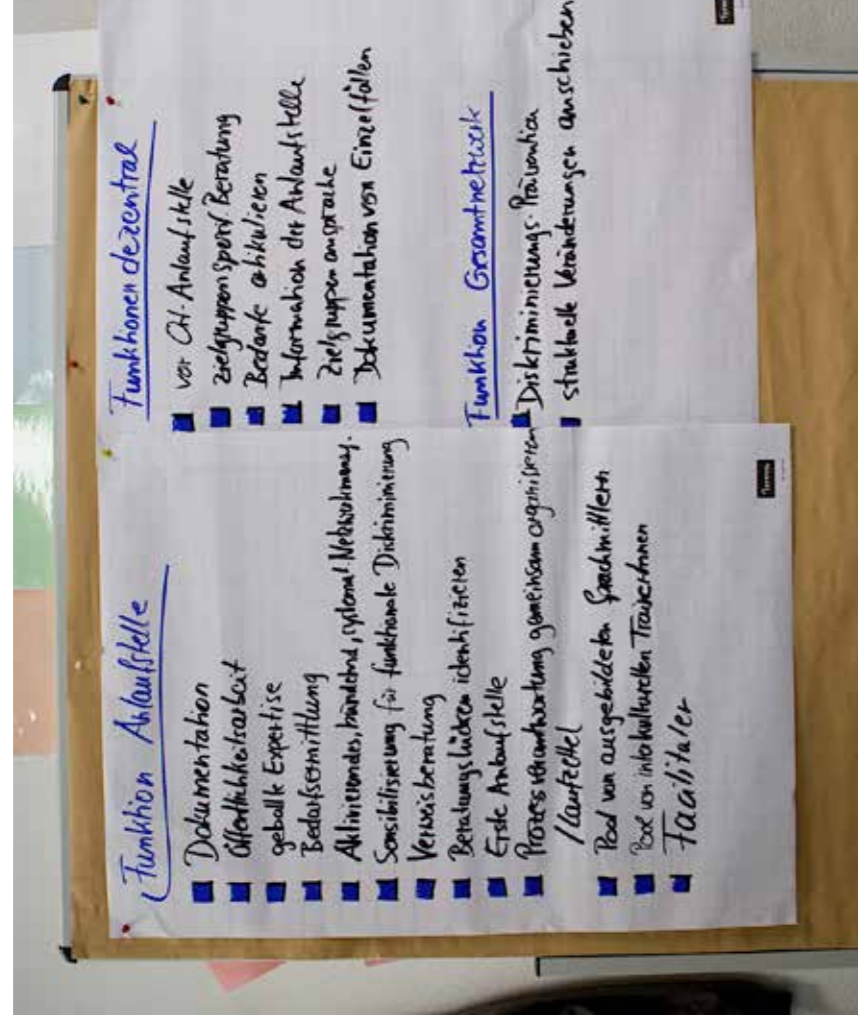 Funktion Anlaufstelle
Dokumentation
Öffentlichkeitsarbeit
geballte Expertise
Bedarfsermittlung
Aktivierendes, bündelnd, systemat. Netzwerkmang.
Sensibilisierung für funktionale Diskriminierung
Verweisberatung
Beratungslücken identifizieren
Erste Anlaufstelle
Prozessverantwortung gemeinsam organisieren
/Laufzettel
Pool von ausgebildeten Sprachmittlern
Pool von interkulturellen TrainerInnen
Facilitator
Funktionen dezentral
vor Ort-Anlaufstelle
zielgruppenspezif Beratung
Bedarfe artikulieren
Information der Anlaufstelle
Zielgruppenansprache
Dokumentation von Einzelfällen
Funktion Gesamtnetzwerk
Diskriminierungs-Prävention
strukturelle Veränderungen anschieben